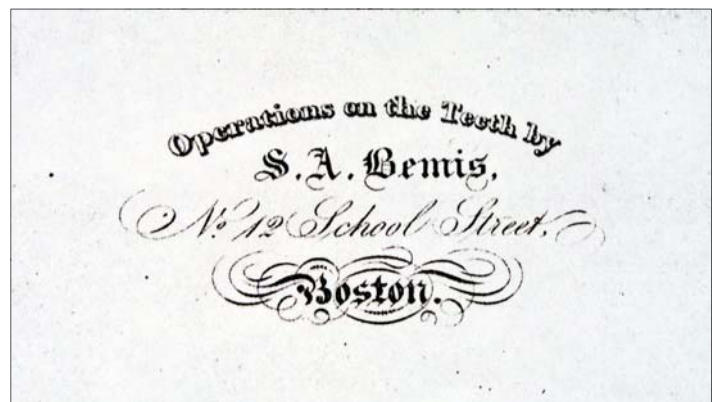 Operations on the Teeth by
S. A. Bemis,
No. 12 School Street,
Boston.